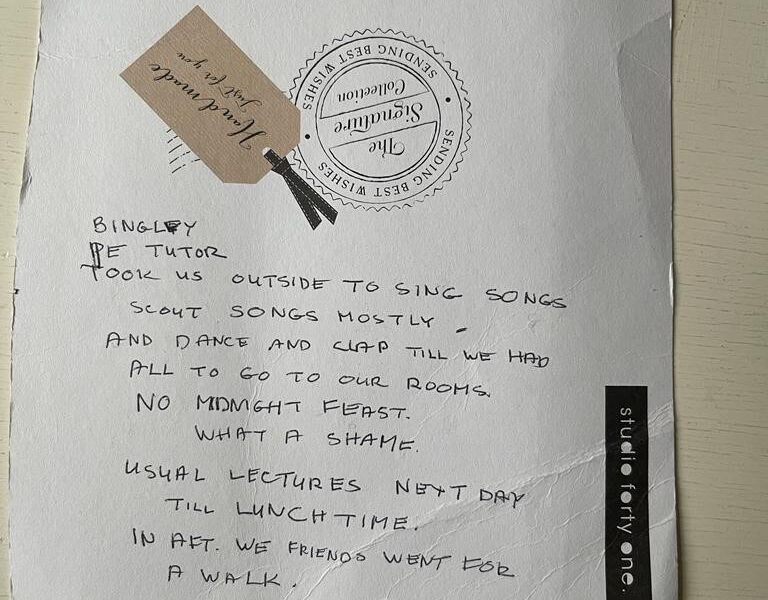 Handmade
Just for you
SENDING BEST WISHES
SENDING BEST WISHES
The
Signature
Collection
BINGLEY
PE TUTOR
TOOK US OUTSIDE TO SING SONGS
SCOUT SONGS MOSTLY
AND DANCE AND CLAP TILL WE HAD
ALL TO GO TO OUR ROOMS.
NO MIDNIGHT FEAST.
WHAT A SHAME.
USUAL LECTURES NEXT DAY
TILL LUNCHTIME.
IN AFT. WE FRIENDS WENT FOR
A WALK.
studio forty one.